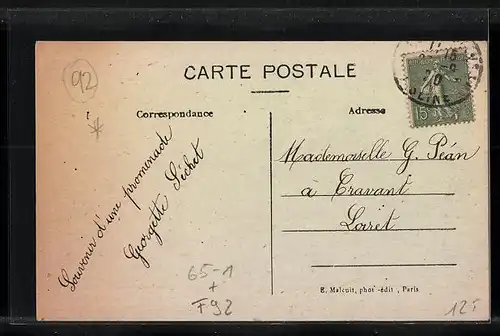 92
CARTE POSTALE
Correspondance
Adresse
Souvenir d'une promenade
Georgette Séchet
Mademoiselle G. Péan
à Travant
Loiret
15
SEINE
65-1
+
F92
E. Malcuit, phot-édit., Paris
12F